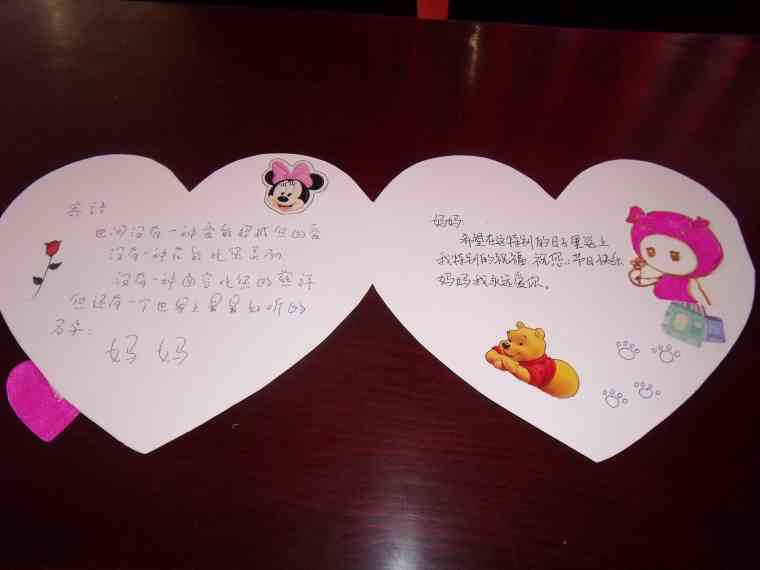 寄语
世间没有一种爱能超越您的爱
没有一种花能比您美丽
没有一种面容比您的慈祥
但还有一个世界上最最好听的
名字：
妈 妈
妈妈：
希望在这特别的日子里送上
我特别的祝福，祝您：节日快乐
妈妈我永远爱你。